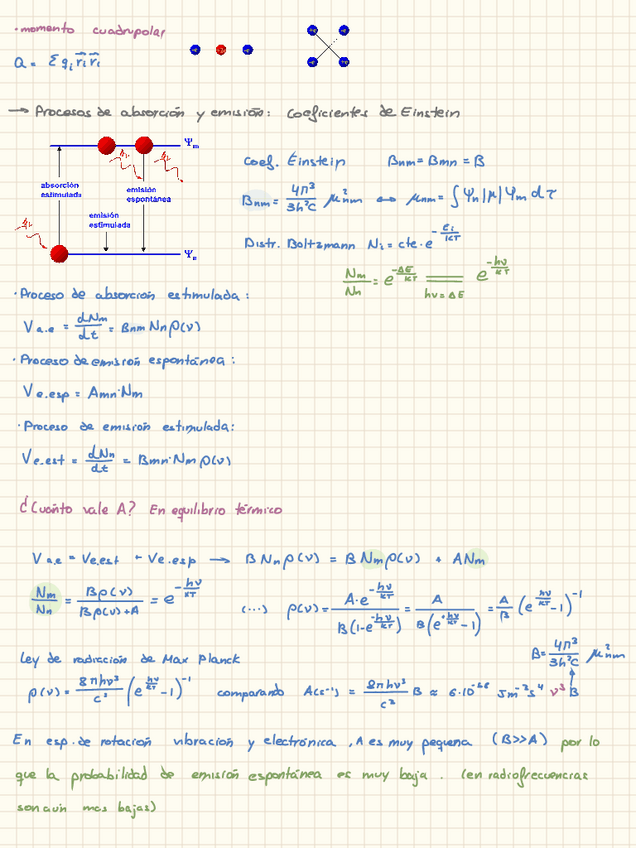 · momento cuadrupolar
Q = Σ qᵢ r⃗ᵢ r⃗ᵢ
→ Procesos de absorción y emisión: Coeficientes de Einstein
Ψm
absorción estimulada
emisión espontánea
emisión estimulada
Ψn
Coef. Einstein Bnm = Bmn = B
Bnm = 4π³/3h²c μ²nm ⇔ μnm = ∫ Ψn |μ| Ψm dτ
Distr. Boltzmann Nᵢ = cte · e^(-εi/kT)
Nm/Nn = e^(-ΔE/kT) = e^(-hν/kT)
hν = ΔE
· Proceso de absorción estimulada:
Va.e = dNm/dt = Bnm Nn ρ(ν)
· Proceso de emisión espontánea:
Ve.esp = Amn · Nm
· Proceso de emisión estimulada:
Ve.est = dNn/dt = Bmn · Nm ρ(ν)
¿Cuánto vale A? En equilibrio térmico
Va.e = Ve.est + Ve.esp → B Nn ρ(ν) = B Nm ρ(ν) + A Nm
Nm/Nn = Bρ(ν)/(Bρ(ν)+A) = e^(-hν/kT) (...) ρ(ν) = A·e^(-hν/kT)/(B(1-e^(-hν/kT))) = A/(B(e^(+hν/kT)-1)) = A/B (e^(hν/kT)-1)⁻¹
Ley de radiación de Max Planck B = 4π³/3h²c μ²nm
ρ(ν) = 8πhν³/c³ (e^(hν/kT)-1)⁻¹ comparando A(s⁻¹) = 8πhν³/c³ B ≈ 6·10⁻⁵⁸ Jm⁻³s⁴ ν³ B
En esp. de rotación vibración y electrónica, A es muy pequeña (B>>A) por lo
que la probabilidad de emisión espontánea es muy baja. (en radiofrecuencias
son aun mas bajas)